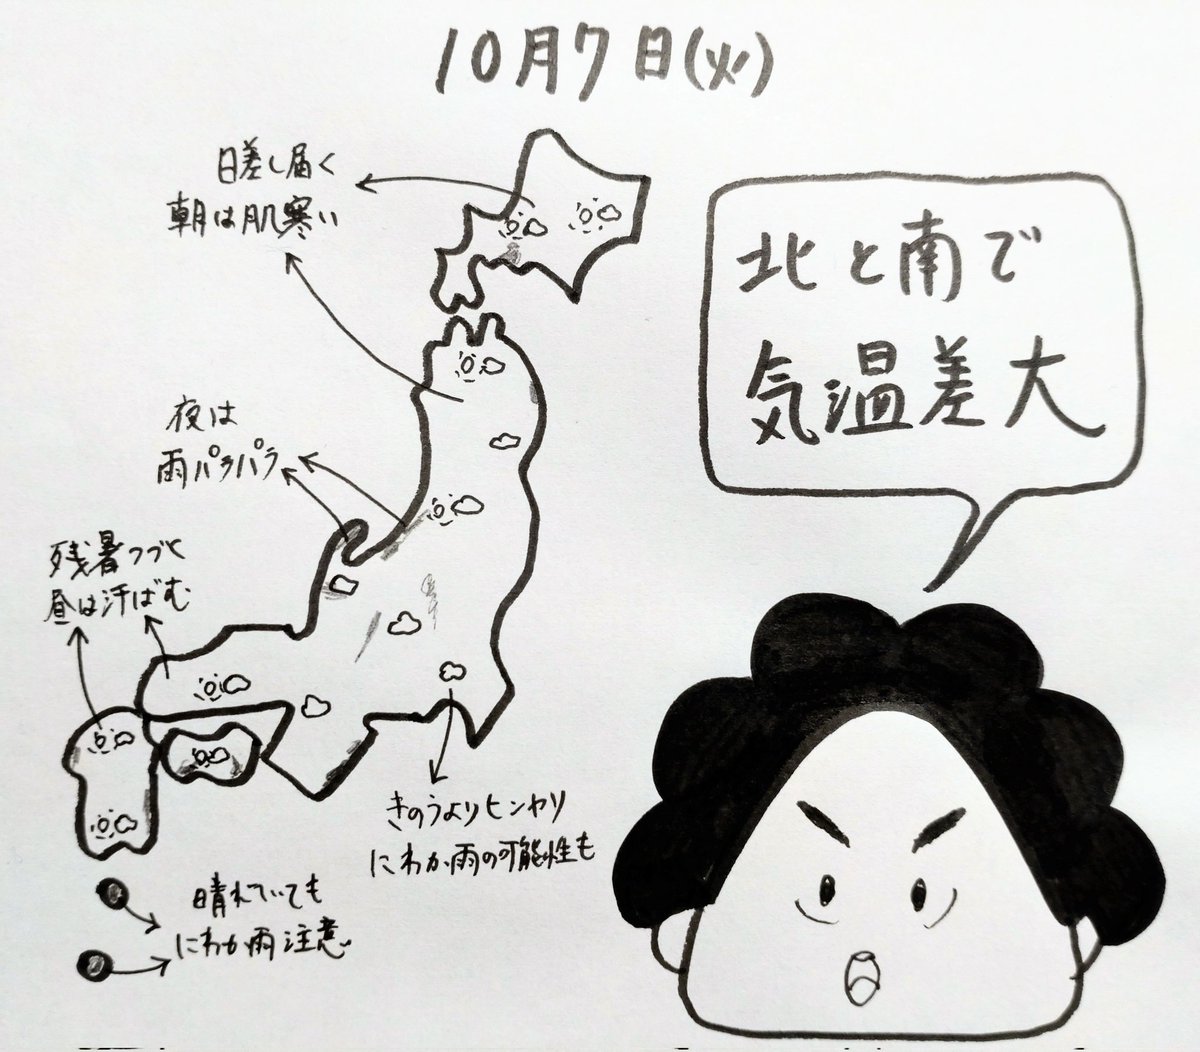 10月7日(火)
日差し届く
朝は肌寒い
北と南で
気温差大
夜は
雨パラパラ
残暑つづく
昼は汗ばむ
きのうよりヒンヤリ
にわか雨の可能性も
晴れていても
にわか雨注意